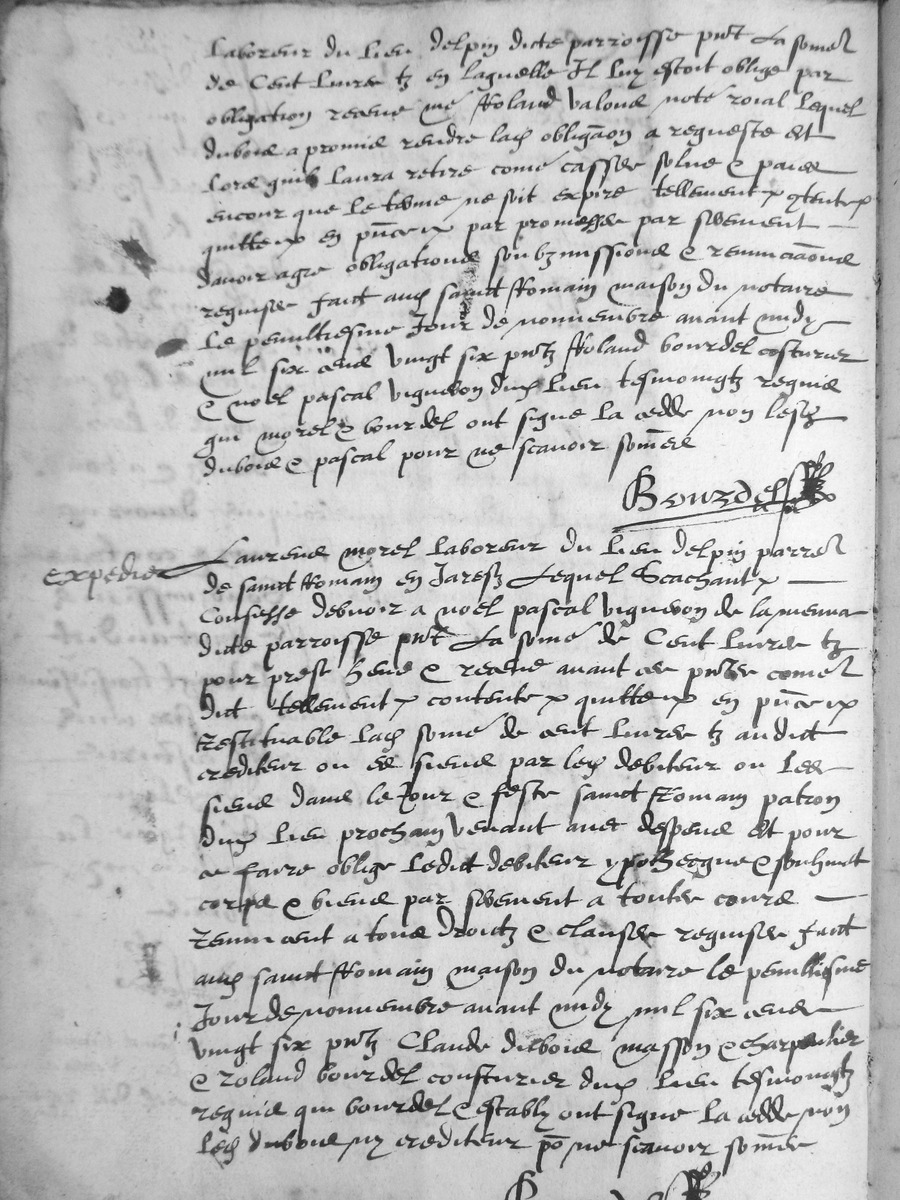 laboreur du lieu delpin dicte parroisse pnt la somel
de Cent livres tz en laquelle Il luy estoit oblige par
obligation receue me Roland valoue note roial lequel
duboie a promie rendre lad obligaon a requeste et
lors quil laura retire come casses solue & paiee
encour que le terme ne soit expire tellement contente
quitte en pnce par promesse par serement
davoir agre obligations soubzmissions & renunciaons
requises faict aud sainct Romain maison du notaire
le penultiesme Jour de nouvembre avant midy
mil six cens vingt six pntz Roland bourdel costurier
& noel pascal vigneron dud lieu tesmoingtz requis
qui morel & bourdel ont signe la cedde non lesd
duboie & pascal pour ne scavoir somes
Bourdel
expedie
Laurens morel laboreur du lieu delpin parrel
de sainct Romain en Jarestz lequel Scachant
Confesse debvoir a noel pascal vigneron de la
dicte parroisse pnt la some de Cent livres tz
pour prest heue & receue avant ces pntes comel
dict tellement contente quitte en pnce
Restituable lad some de cent livres tz audict
crediteur ou es siens par led debiteur ou les
siens dans le Jour & feste sainct Romain patron
dud lieu prochain venant avec despens et pour
ce faire oblige ledict debiteur ypothecque & soubmet
corps & biens par serement a toutes cours
renuncent a tous droitz & clauses requises faict
aud sainct Romain maison du notaire le penultiesme
Jour de nouvembre avant midy mil six cens
vingt six pntz Claude duboie masson & charpentier
& roland bourdel costurier dud lieu tesmoingtz
requis qui bourdel & estably ont signe la cedde non
led duboie ny crediteur po ne scavoir somes